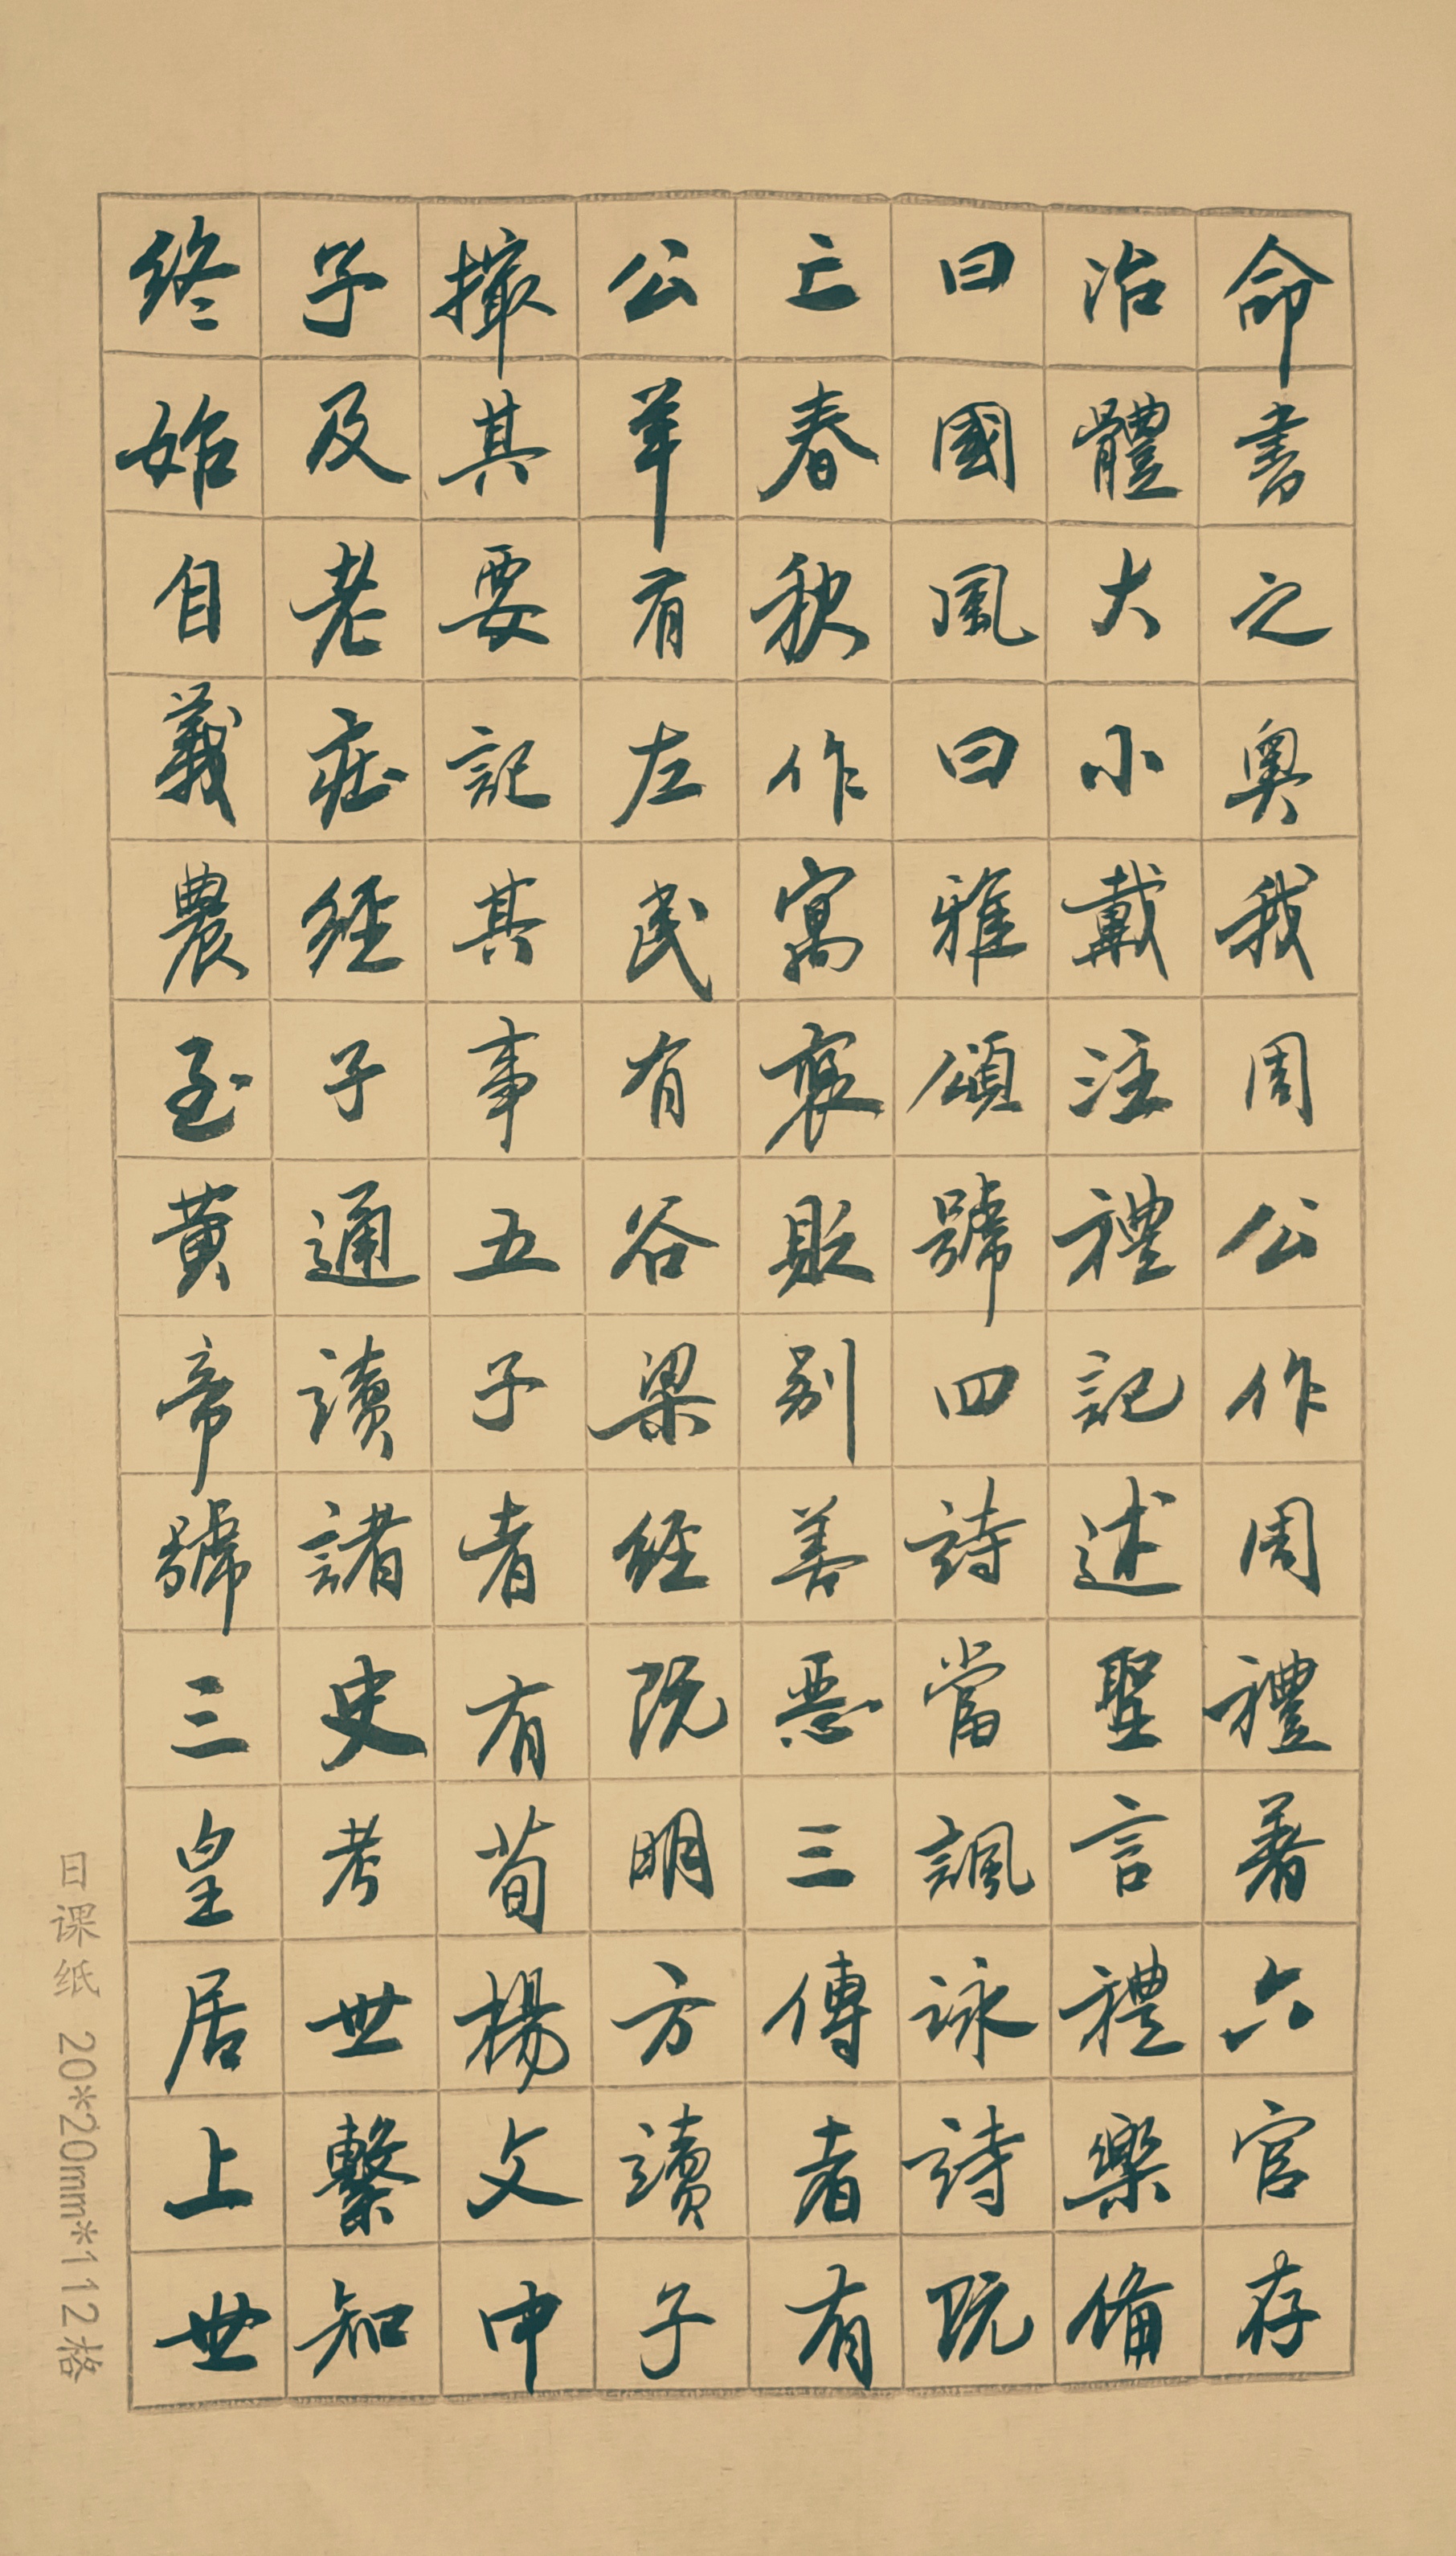 命書之奧我周公作周禮著六官存
治體大小戴注禮記述聖言禮樂備
曰國風曰雅頌號四詩當諷詠詩既
亡春秋作寓褒貶別善惡三傳者有
公羊有左氏有谷梁經既明方讀子
撮其要記其事五子者有荀楊文中
子及老莊經子通讀諸史考世繫知
終始自羲農至黃帝號三皇居上世
日课纸 20*20mm*112格